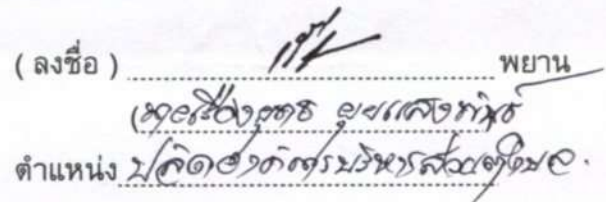 ( ลงชื่อ ) พยาน
(นายเรืองยุทธ
ตำแหน่ง ปลัดองค์การบริหารส่วนตำบล.